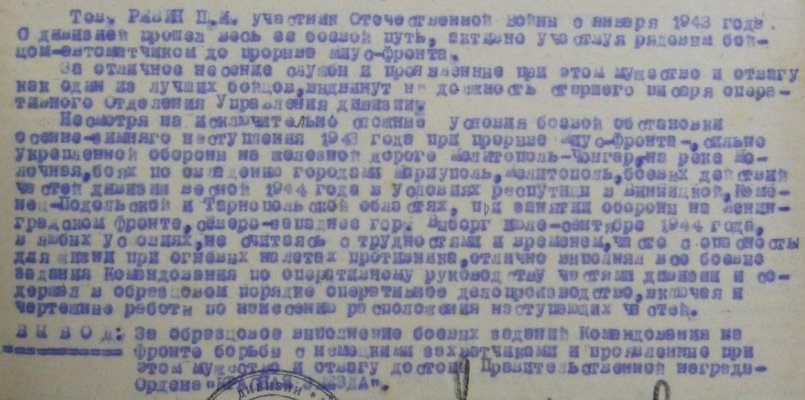 Тов. РЯБИН П.И. участник Отечественной войны с января 1943 года.
С дивизией прошел весь ее боевой путь, активно участвуя рядовым бой-
цом-автоматчиком до прорыва Миус-фронта.
За отличное несение службы и проявленные при этом мужество и отвагу
как один из лучших бойцов, выдвинут на должность старшего писаря опера-
тивного Отделения Управления дивизии.
Несмотря на исключительно сложные условия боевой обстановки
осенне-зимнего наступления 1943 года при прорыве Миус-фронта, сильно
укрепленной обороны на железной дороге Мелитополь-Чонгар, на реке Мо-
лочная, боях по овладению городами Мариуполь, Мелитополь, боевых действий
частей дивизии весной 1944 года в условиях распутицы в Винницкой, Каме-
нец-Подольской и Тарнопольской областях, при занятии обороны на Ленин-
градском фронте, северо-западнее гор. Выборг июле-сентябре 1944 года,
в любых условиях, не считаясь с трудностями и временем, часто с опасностью
для жизни при огневых налетах противника, отлично выполнял все боевые
задания Командования по оперативному руководству частями дивизии и со-
держал в образцовом порядке оперативное делопроизводство, включая и
чертежные работы по нанесению расположения наступающих частей.
ВЫВОД: За образцовое выполнение боевых заданий Командования на
фронте борьбы с немецкими захватчиками и проявленные при
этом мужество и отвагу достоин Правительственной награды-
Ордена "КРАСНАЯ ЗВЕЗДА".
ДИВИЗИИ